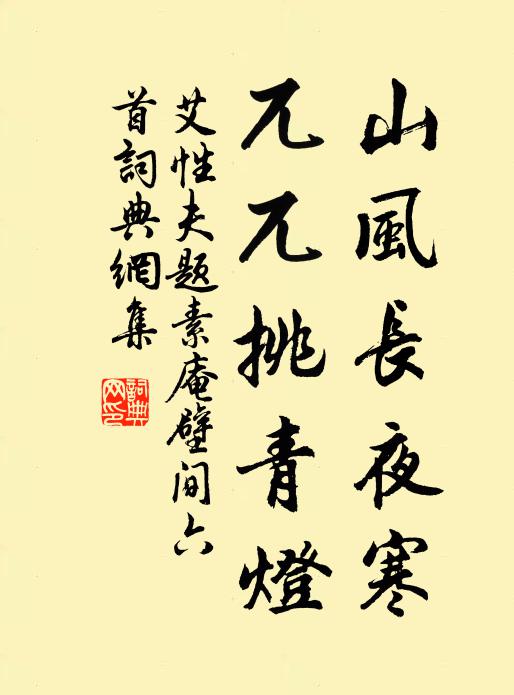 山風長夜寒
兀兀挑青燈
艾性夫题素庵壁间六
首詞典網集
詞典
网印